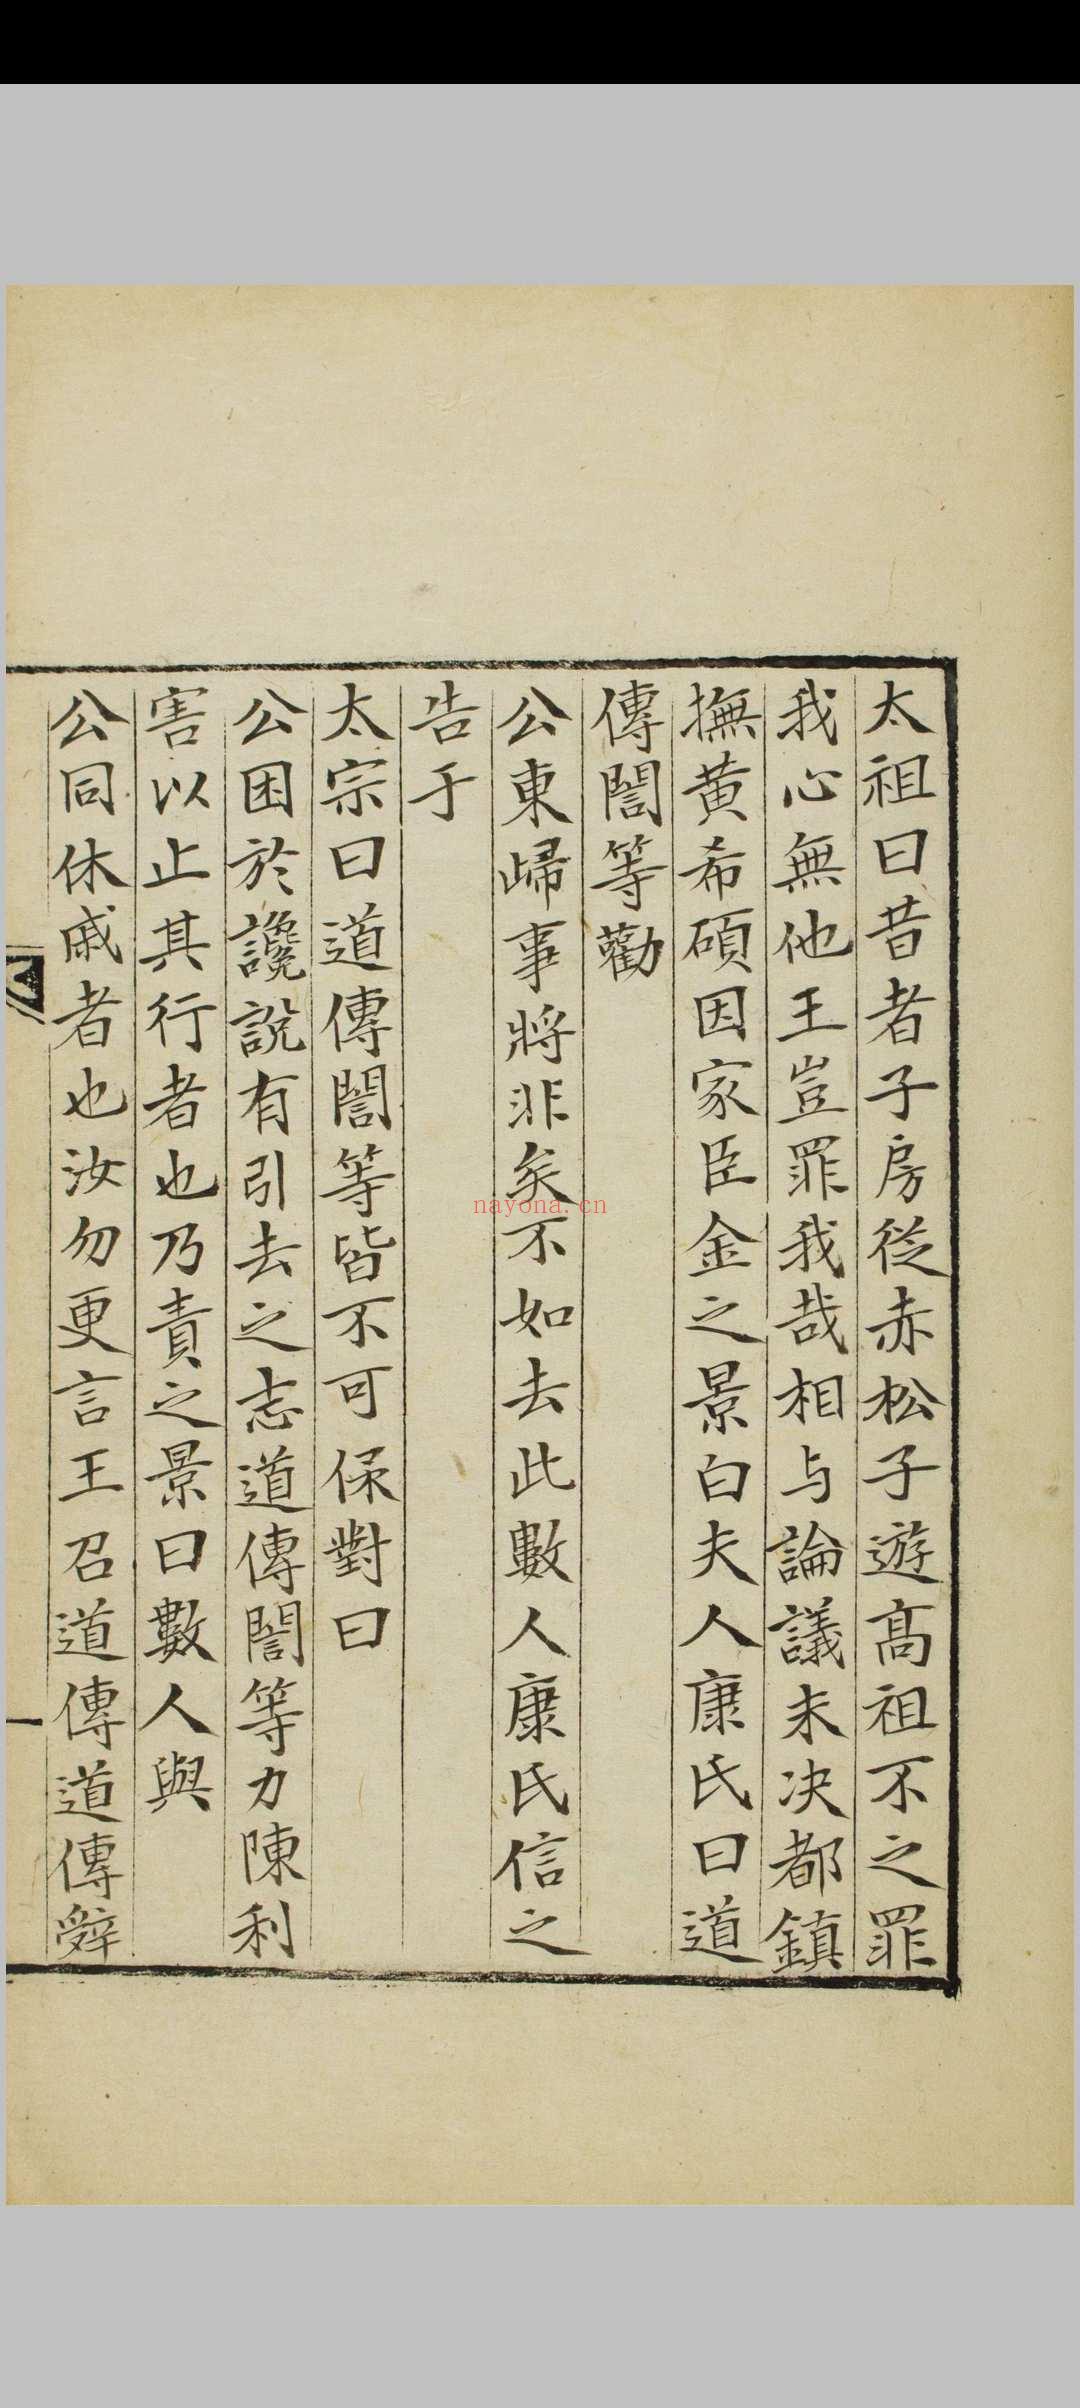 太祖曰昔者子房從赤松子遊髙祖不之罪
我心無他王豈罪我哉相与論議未决都鎮
撫黄希碩因家臣金之景白夫人康氏曰道
傳誾等勸
公東歸事將非矣不如去此數人康氏信之
告于
太宗曰道傳誾等皆不可保對曰
公困於讒說有引去之志道傳誾等力陳利
害以止其行者也乃責之景曰數人與
公同休戚者也汝勿更言王召道傳道傳辭
一
nayona.cn